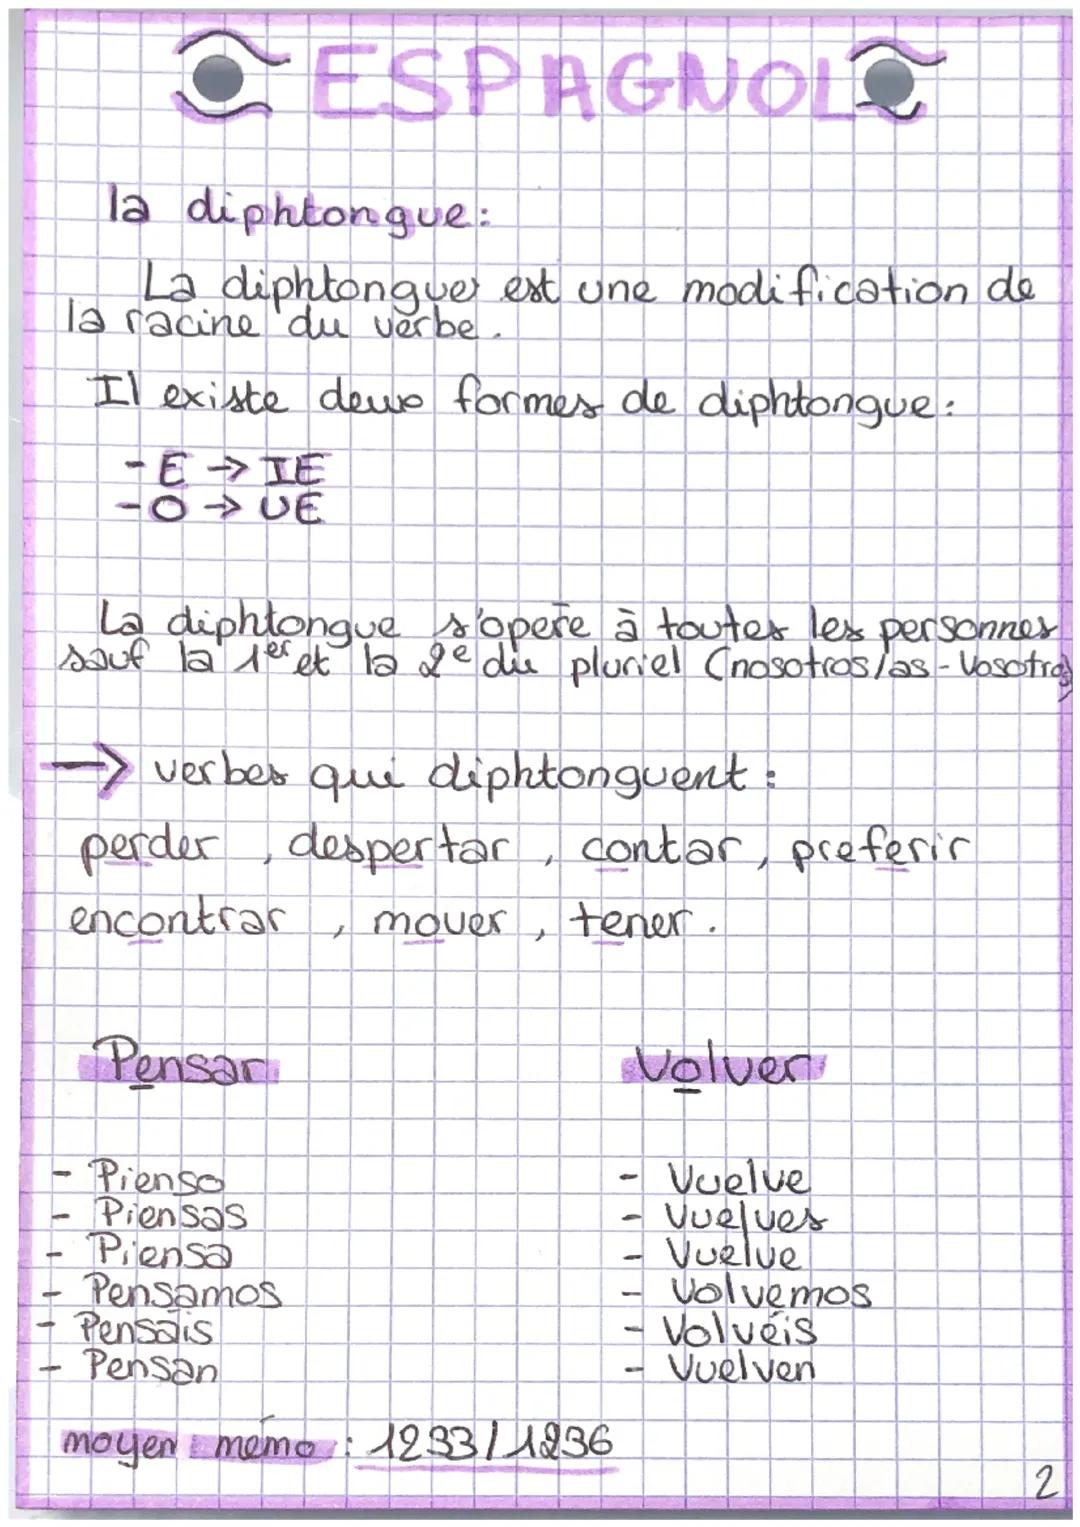 ESPAGNOL
la diphtongue:
La diphtongue est une modification de
la racine du verbe.
Il existe deux formes de diphtongue:
- E → IE
- O → UE
La diphtongue s'opere à toutes les personnes
sauf la 1er et la 2e du pluriel (nosotros/as - Vosotros)
→ verbes qui diphtonguent:
perder, despertar, contar, preferir
encontrar, mover, tener.
Pensar Volver
- Pienso - Vuelve
- Piensas - Vuelves
- Piensa - Vuelve
- Pensamos - Volvemos
- Pensáis - Volvéis
- Pensan - Vuelven
moyen mémo: 1233/1236
2